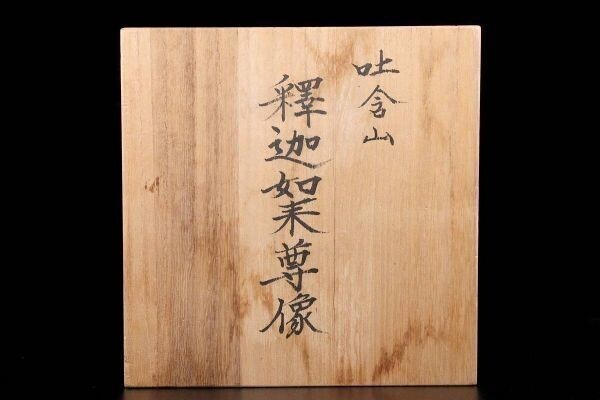 吐含山
釋迦如来尊像